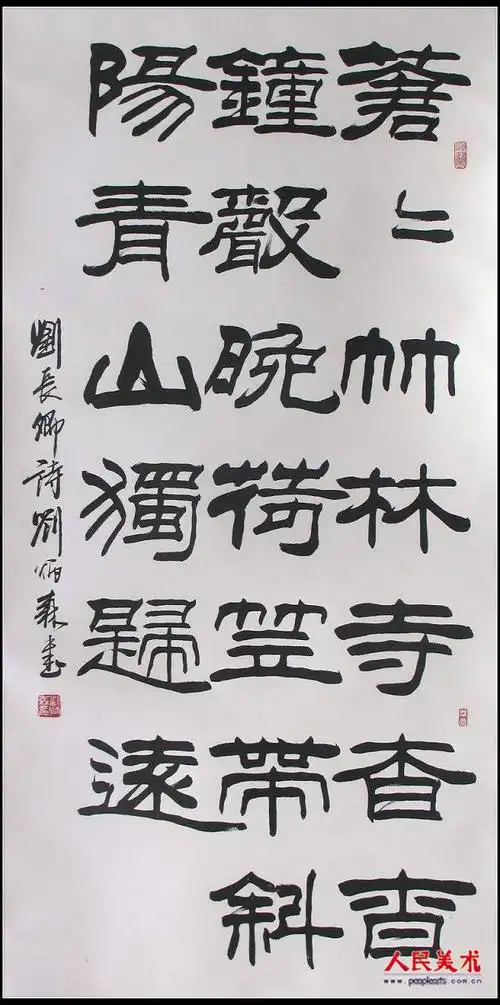 蒼〻竹林寺杳杳
鐘聲晚荷笠帶斜
陽青山獨歸遠
劉長卿詩劉炳森書
人民美术
www.peoplearts.com.cn